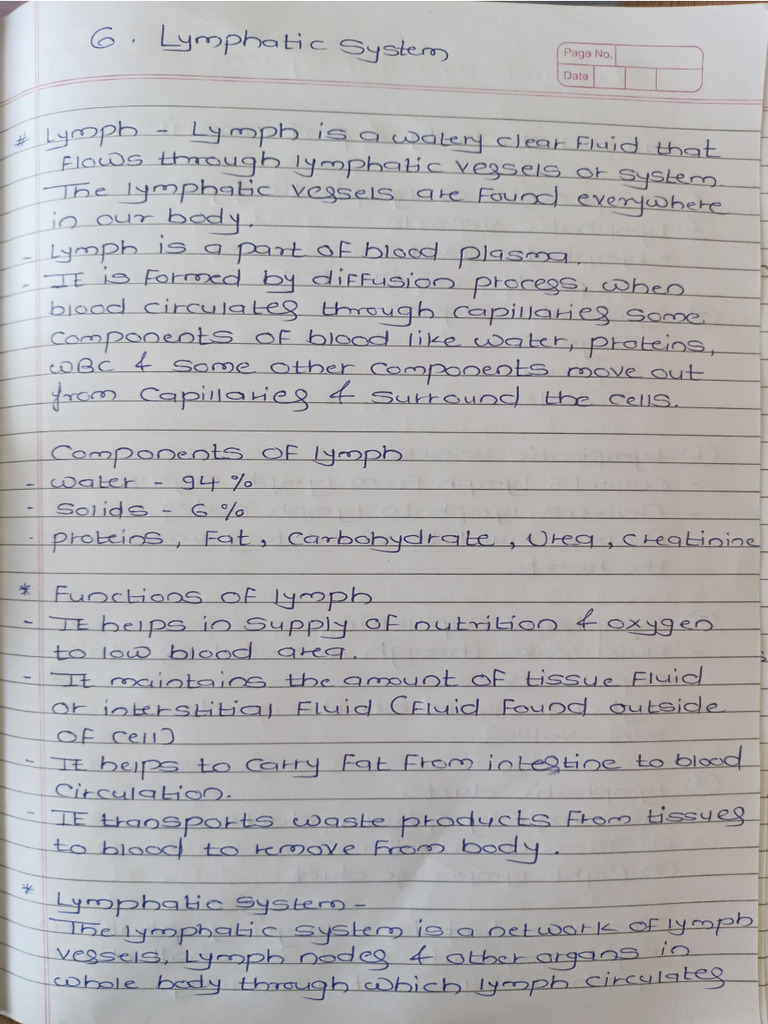 6. Lymphatic System
Page No.
Date
# Lymph - Lymph is a watery clear fluid that
flows through lymphatic vessels or system.
The lymphatic vessels are found everywhere
in our body.
- Lymph is a part of blood plasma.
- It is formed by diffusion process, when
blood circulates through capillaries some
components of blood like water, proteins,
WBC & some other components move out
from capillaries & surround the cells.
Components of lymph
- water - 94 %
- Solids - 6 %
- proteins, Fat, Carbohydrate, Urea, Creatinine
* Functions of lymph
- It helps in supply of nutrition & oxygen
to low blood area.
- It maintains the amount of tissue fluid
or interstitial fluid (fluid found outside
of cell)
- It helps to carry fat from intestine to blood
circulation.
- It transports waste products from tissues
to blood to remove from body.
* Lymphatic system -
The lymphatic system is a network of lymph
vessels, lymph nodes & other organs in
whole body through which lymph circulates